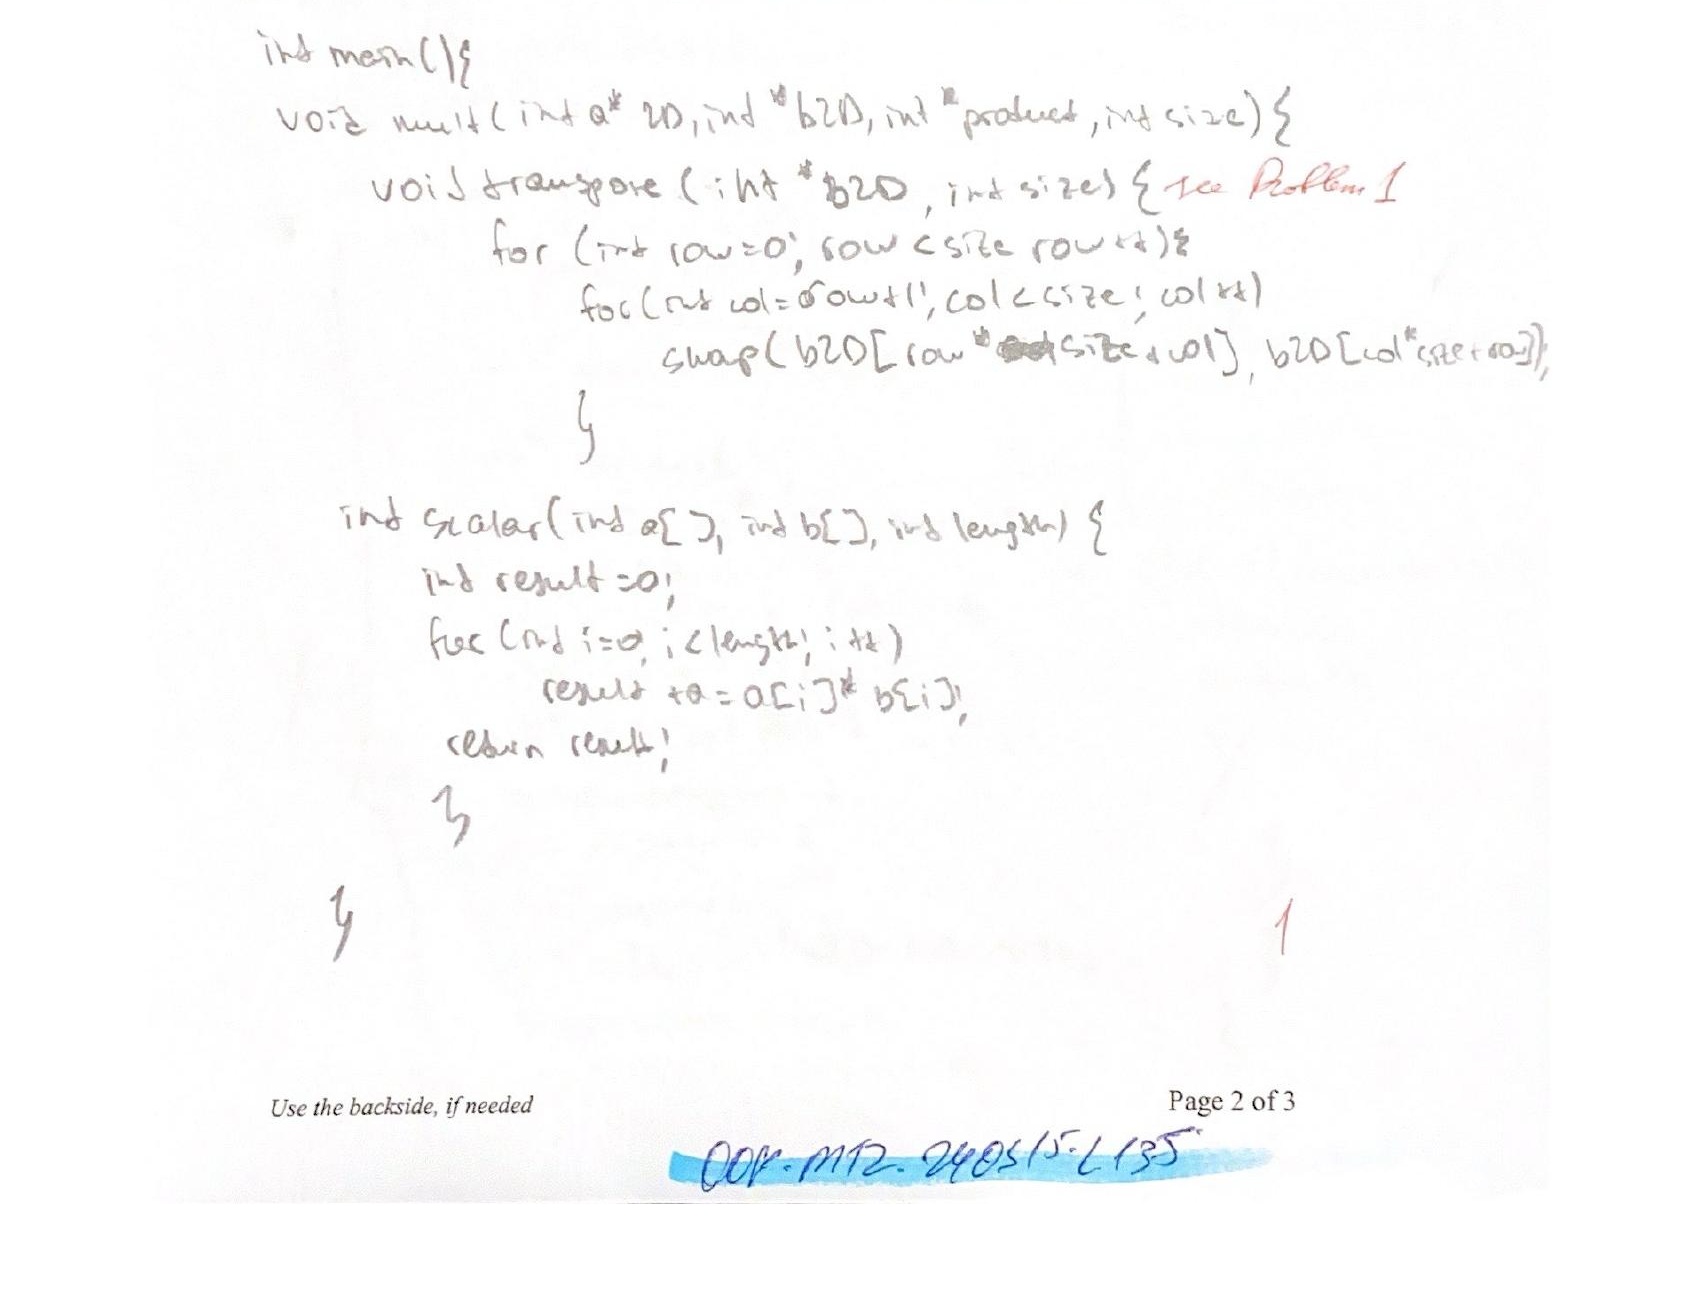 int main(){
void mult(int a* 2D, int *b2D, int *product, int size){
void transpose (int *b2D, int size) { see Problem 1
for (int row=0; row < size row++){
for(int col=row+1; col<size; col++)
swap(b2D[row* size+col], b2D[col*size+row]);
}
int scalar(int a[], int b[], int length) {
int result =0;
for (int i=0; i<length; i++)
result += a[i]* b[i];
return result;
}
}
1
Use the backside, if needed
Page 2 of 3